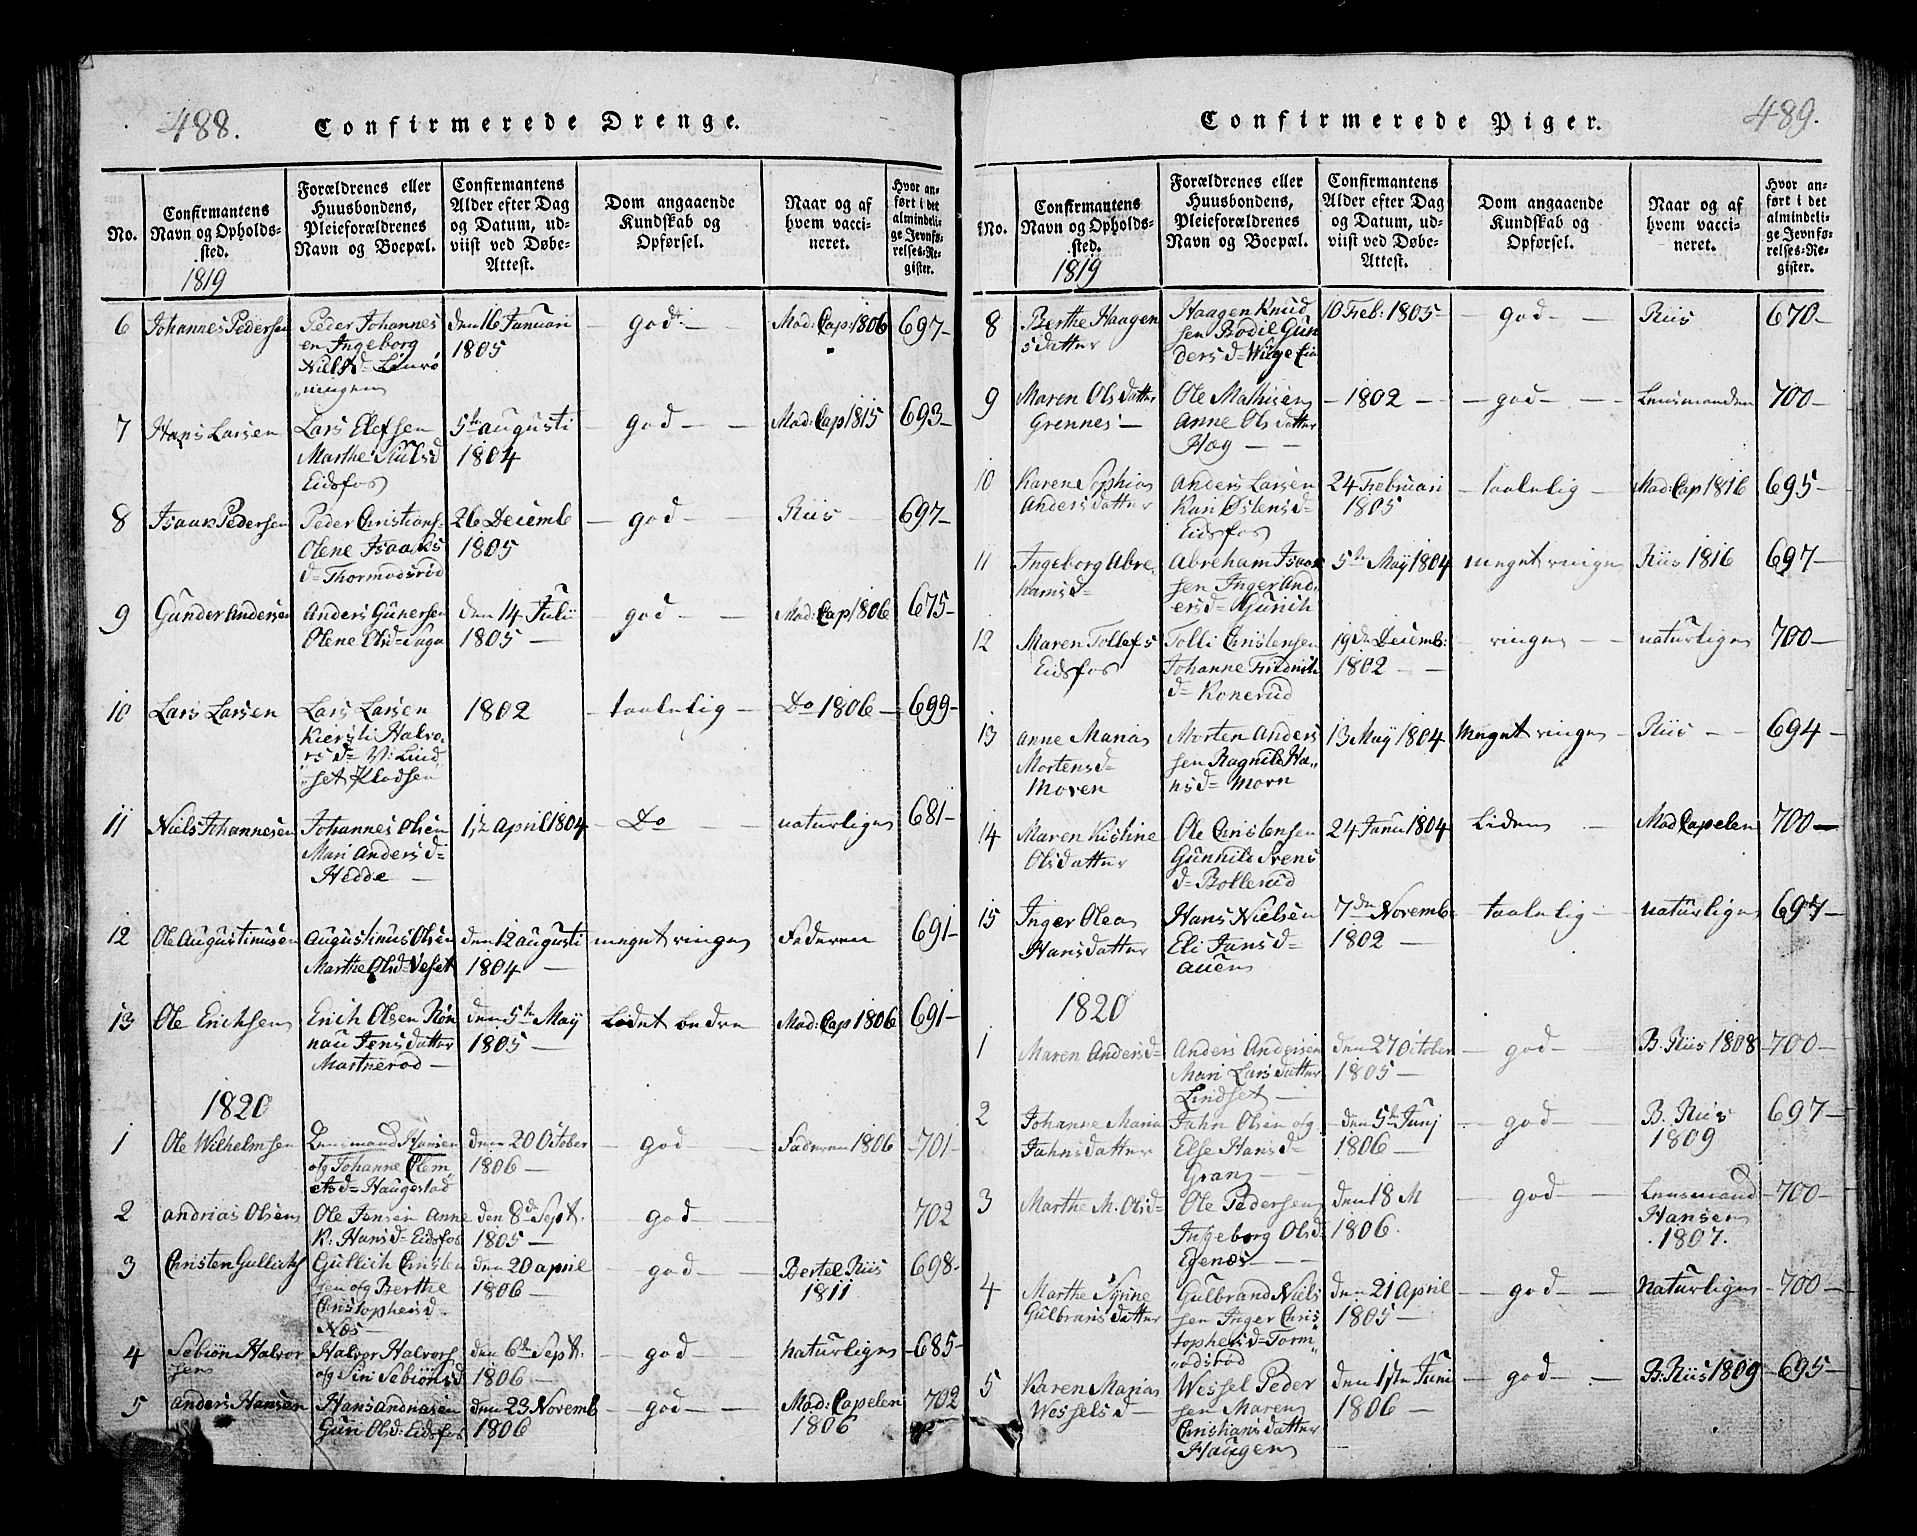 488.
Confirmerede Drenge.
No.
Confirmantens
Navn og Opholds-
sted.
1819
Forældrenes eller
Huusbondens,
Pleieforældrenes
Navn og Boepæl.
Confirmantens
Alder efter Dag
og Datum, ud-
viist ved Døbe-
Attest.
Dom angaaende
Kundskab og
Opførsel.
Naar og af
hvem vacci-
neret.
Hvor an-
ført i det
almindeli-
ge Jevnfø-
relses-Re-
gister.
6
Johannes Pedersen
Peder Johannes
en Ingeborg
Nielsd=
ningen
den 16 Januari
1805
god
Mad: Cap: 1806
697
7
Hans Larsen
Lars Elefsen
Marthe
Eidsfos
5te augusti
1804
god
Mad: Cap 1815
693
8
Isaak Pedersen
Peder Christians-
Olene Isaaks
d= Thormodsrød
26 Decemb
1805
god
Riis
697
9
Gunder Andersen
Anders Gunersen
Olene Olsd=
den 14 Julii
1805
god
Mad: Cap 1806
675
10
Lars Larsen
Lars Larsen
Kiersti Halvo
rsd= V: Lind
set Klodsen
1802
taalelig
Do 1806
699
11
Niels Johannesen
Johannes Olsen
Mari Andersd=
Hedde
April 1804
Do
naturlige
681
12
Ole Augustinusen
Augustinus Olsen
Marthe Olsd= Veset
den 12 augusti
1804
meget ringe
Faderen
691
13
Ole Erichsen
Erich Olsen Røn
nau Jensdatter
Martnerød
den 5te May
1805
Lidet bedre
Mad: Cap 1806
691
1820
1
Ole Wilhelmsen
Lensmand Hansen
og Johanne Clem
etsd= Haugestad
den 20 October
1806
god
Faderen 1806
701
2
Andrias Olsen
Ole Jensen Anne
K: Hansd= Eidsfos
den 8de Sept.
1805
god
702
3
Christen Gullichs
Gullich Christen
sen og Berthe
Christophersd.
Næs
den 20 april
1806
god
Bertel Riis
1811
698
4
Sebiøn Halvor
sen
Halvor Halvors
og Siri Sebiønsd
den 6te Sept.
1806
god
naturlige
685
5
Anders Hansen
Hans Andreasen
Guri Olsd: Eidsfos
den 23 Novemb
1806
god
Mad: Capelen
1806
702
489.
Confirmerede Piger.
No.
Confirmantens
Navn og Opholds-
sted.
1819
Forældrenes eller
Huusbondens,
Pleieforældrenes
Navn og Boepæl.
Confirmantens
Alder efter Dag
og Datum, ud-
viist ved Døbe-
Attest.
Dom angaaende
Kundskab og
Opførsel.
Naar og af
hvem vacci-
neret.
Hvor an-
ført i det
almindeli-
ge Jevnfø-
relses-Re-
gister.
8
Berthe Haagen
sdatter
Haagen Knud
sen Bodil Gun
dersd=
10 Feb: 1805
god
Riis
670
9
Maren Olsdatter
Grennes
Ole Mathisen
Anne Olsdatter
Hag
1802
god
Lensmanden
700
10
Karene Sophia
Andersdatter
Anders Larsen
Kari Østensd=
Eidsfos
24 Februari
1805
taalelig
Mad: Cap 1816
695
11
Ingeborg Abre
hamsd=
Abreham Isaak
sen Inger And
ersd= Gurich
5te May 1804
meget ringe
Riis 1816
697
12
Maren Tollefs
Eidsfos
Tolli Christensen
Johanne Fridrich
d= Konerud
19de Decemb:
1802
ringe
naturlige
700
13
Anne Maria
Mortensd=
Moren
Morten Anders
sen Ragnild Ha
nsd= Morn
13 May 1804
Meget ringe
Riis
694
14
Maren Kistine
Olsdatter
Ole Christensen
Gunnild Svens
d= Bollerud
24 Janu 1804
Liden
Mad Capelen
700
15
Inger Olea
Hansdatter
Hans Nielsen
Eli Jansd=
Auen
7de Novemb
1802
taalelig
naturlige
697
1820
1
Maren Andersd=
Anders Andersen
Mari Larsdatter
Lindset
den 27 October
1805
god
B. Riis 1808
700
2
Johanne Maria
Jahnsdatter
Jahn Olsen og
Else Hansd=
Gran
den 5te Junj
1806
god
B. Riis
1809
697
3
Marthe M. Olsd=
Ole Pedersen
Ingeborg Olsd=
Egenæs
den 18 M
1806.
god
Lensmand
Hansen
1807.
700
4
Marthe Syrine
Gulbransdatter
Gulbrand Niels
sen Inger Chris
tophersd= Torm
odsrød
den 21 April
1805
god
Naturlige
700
5
Karen Maria
Wesselsd=
Wessel Peder
sen Maren
Christiansdatter
Haugen
den 17te Juni
1806
god
B: Riis 1809
695